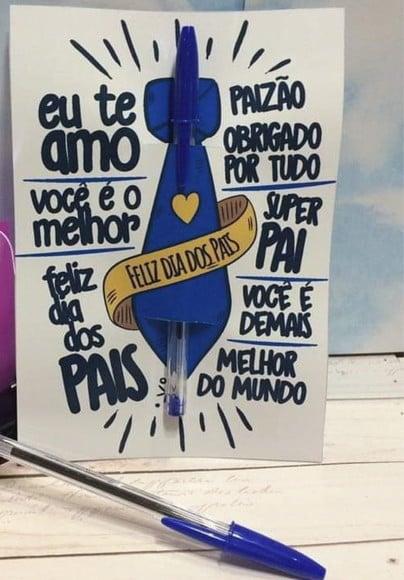 eu te
amo
VOCÊ É O
melhor
feliz
dia
dos
PAIS
PAIZÃO
OBRIGADO
POR TUDO
SUPER
PAI
VOCÊ É
DEMAIS
MELHOR
DO MUNDO
FELIZ DIA DOS PAIS